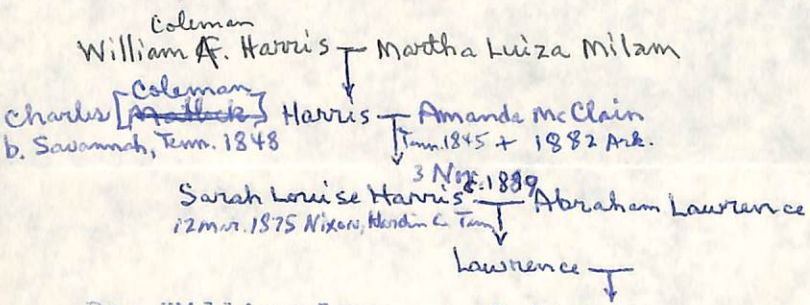 Coleman
William A. Harris Martha Luiza Milam
Coleman
Charles [Matlock] Harris Amanda McClain
b. Savannah, Tenn. 1848 Tenn. 1845 + 1882 Ark.
3 Nov. 1889
Sarah Louise Harris Abraham Lawrence
12 Mar. 1875 Nixon, Hardin C. Tenn
Lawrence